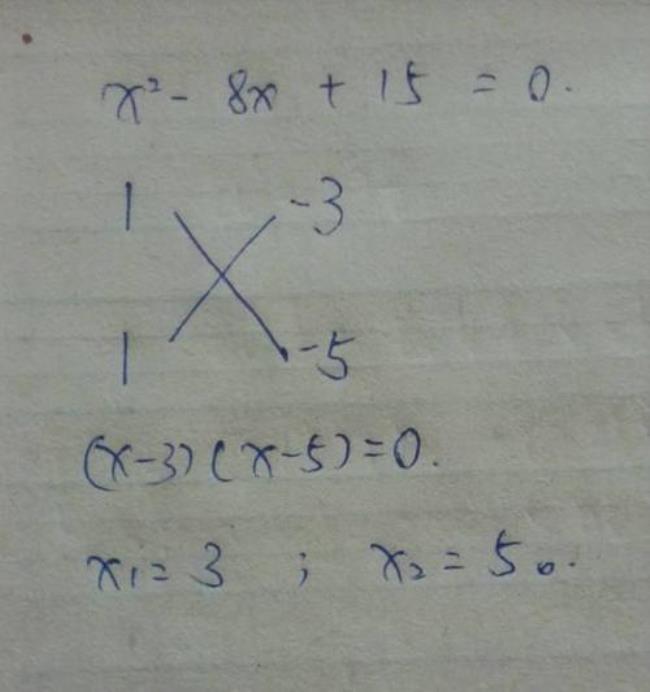 x² - 8x + 15 = 0.
1 -3
1 -5
(x-3)(x-5)=0.
x₁= 3 ; x₂= 5。